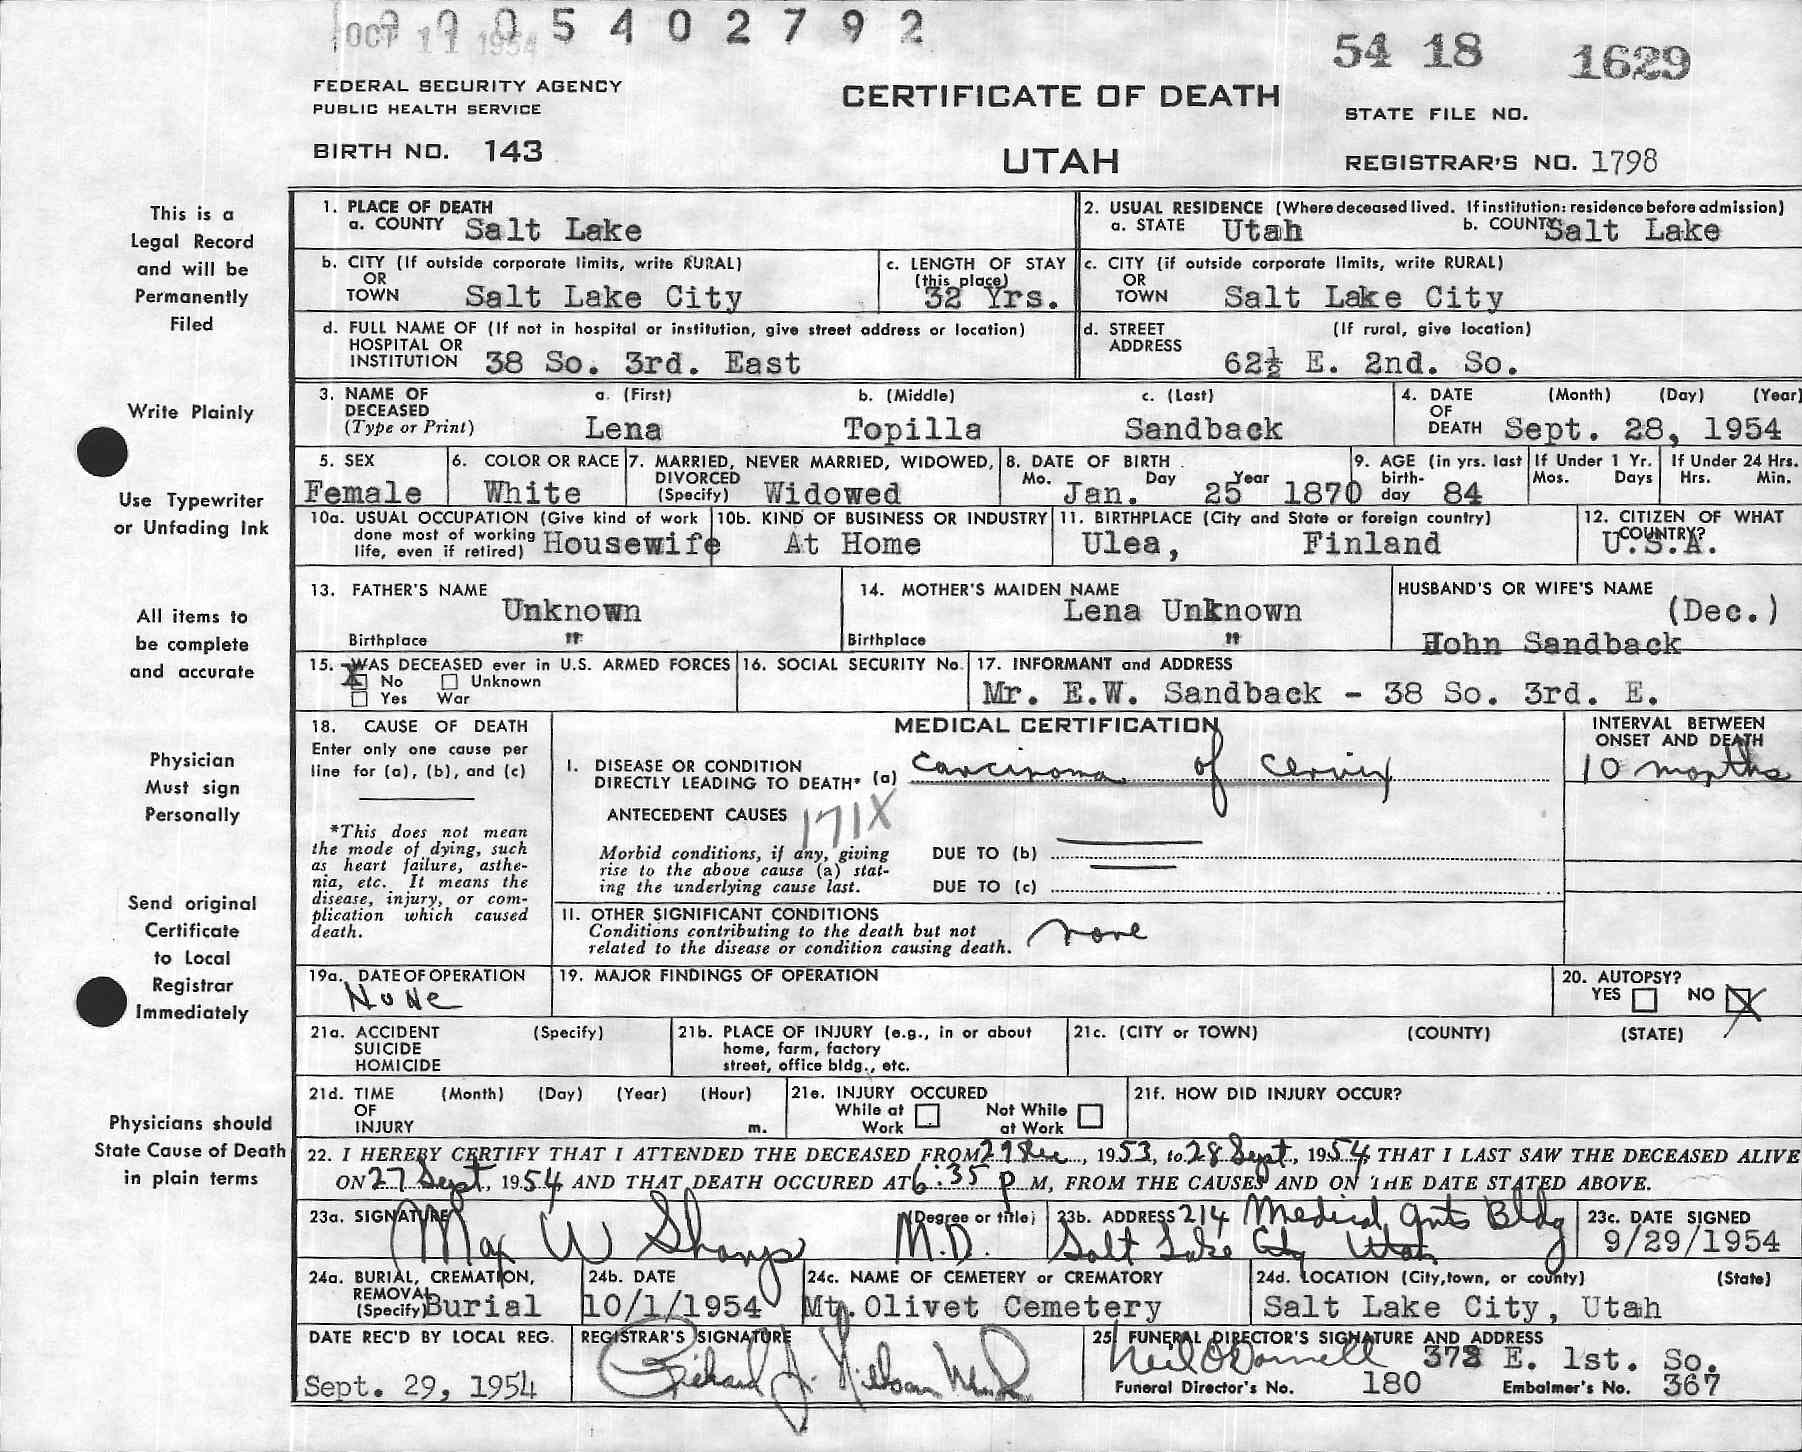 OCT 11 1954 5 4 0 2 7 9 2
54 18 1629
FEDERAL SECURITY AGENCY
PUBLIC HEALTH SERVICE
CERTIFICATE OF DEATH
STATE FILE NO.
BIRTH NO. 143
UTAH
REGISTRAR'S NO. 1798
This is a
Legal Record
and will be
Permanently
Filed
Write Plainly
Use Typewriter
or Unfading Ink
All items to
be complete
and accurate
Physician
Must sign
Personally
Send original
Certificate
to Local
Registrar
Immediately
Physicians should
State Cause of Death
in plain terms
1. PLACE OF DEATH
a. COUNTY Salt Lake
2. USUAL RESIDENCE (Where deceased lived. If institution: residence before admission)
a. STATE Utah b. COUNTY Salt Lake
b. CITY (If outside corporate limits, write RURAL)
OR
TOWN Salt Lake City
c. LENGTH OF STAY
(this place)
32 Yrs.
c. CITY (if outside corporate limits, write RURAL)
OR
TOWN Salt Lake City
d. FULL NAME OF (If not in hospital or institution, give street address or location)
HOSPITAL OR
INSTITUTION 38 So. 3rd. East
d. STREET (If rural, give location)
ADDRESS
62½ E. 2nd. So.
3. NAME OF a. (First) b. (Middle) c. (Last)
DECEASED
(Type or Print) Lena Topilla Sandback
4. DATE (Month) (Day) (Year)
OF
DEATH Sept. 28, 1954
5. SEX
Female
6. COLOR OR RACE
White
7. MARRIED, NEVER MARRIED, WIDOWED,
DIVORCED
(Specify) Widowed
8. DATE OF BIRTH
Mo. Day Year
Jan. 25 1870
9. AGE (in yrs. last
birth-
day 84
If Under 1 Yr.
Mos. Days
If Under 24 Hrs.
Hrs. Min.
10a. USUAL OCCUPATION (Give kind of work
done most of working
life, even if retired) Housewife
10b. KIND OF BUSINESS OR INDUSTRY
At Home
11. BIRTHPLACE (City and State or foreign country)
Ulea, Finland
12. CITIZEN OF WHAT
COUNTRY?
U.S.A.
13. FATHER'S NAME
Unknown
Birthplace "
14. MOTHER'S MAIDEN NAME
Lena Unknown
Birthplace "
HUSBAND'S OR WIFE'S NAME
(Dec.)
John Sandback
15. WAS DECEASED ever in U.S. ARMED FORCES
X No Unknown
Yes War
16. SOCIAL SECURITY No.
17. INFORMANT and ADDRESS
Mr. E.W. Sandback - 38 So. 3rd. E.
18. CAUSE OF DEATH
Enter only one cause per
line for (a), (b), and (c)
*This does not mean
the mode of dying, such
as heart failure, asthe-
nia, etc. It means the
disease, injury, or com-
plication which caused
death.
MEDICAL CERTIFICATION
INTERVAL BETWEEN
ONSET AND DEATH
I. DISEASE OR CONDITION
DIRECTLY LEADING TO DEATH* (a) Carcinoma of Cervix
10 months
ANTECEDENT CAUSES 171X
Morbid conditions, if any, giving
rise to the above cause (a) stat-
ing the underlying cause last.
DUE TO (b)
DUE TO (c)
II. OTHER SIGNIFICANT CONDITIONS
Conditions contributing to the death but not
related to the disease or condition causing death.
none
19a. DATE OF OPERATION
None
19. MAJOR FINDINGS OF OPERATION
20. AUTOPSY?
YES NO X
21a. ACCIDENT (Specify)
SUICIDE
HOMICIDE
21b. PLACE OF INJURY (e.g., in or about
home, farm, factory
street, office bldg., etc.
21c. (CITY or TOWN) (COUNTY) (STATE)
21d. TIME (Month) (Day) (Year) (Hour)
OF
INJURY m.
21e. INJURY OCCURED
While at Work Not While at Work
21f. HOW DID INJURY OCCUR?
22. I HEREBY CERTIFY THAT I ATTENDED THE DECEASED FROM 29 Dec, 1953, to 28 Sept, 1954, THAT I LAST SAW THE DECEASED ALIVE
ON 27 Sept, 1954 AND THAT DEATH OCCURED AT 6:35 P M, FROM THE CAUSES AND ON THE DATE STATED ABOVE.
23a. SIGNATURE (Degree or title)
Max W Sharp M.D.
23b. ADDRESS 214 Medical Arts Bldg
Salt Lake City Utah
23c. DATE SIGNED
9/29/1954
24a. BURIAL, CREMATION,
REMOVAL
(Specify) Burial
24b. DATE
10/1/1954
24c. NAME OF CEMETERY or CREMATORY
Mt. Olivet Cemetery
24d. LOCATION (City, town, or county) (State)
Salt Lake City, Utah
DATE REC'D BY LOCAL REG.
Sept. 29, 1954
REGISTRAR'S SIGNATURE
Richard J.
25. FUNERAL DIRECTOR'S SIGNATURE AND ADDRESS
Neil O'Donnell 372 E. 1st. So.
Funeral Director's No. 180 Embalmer's No. 367